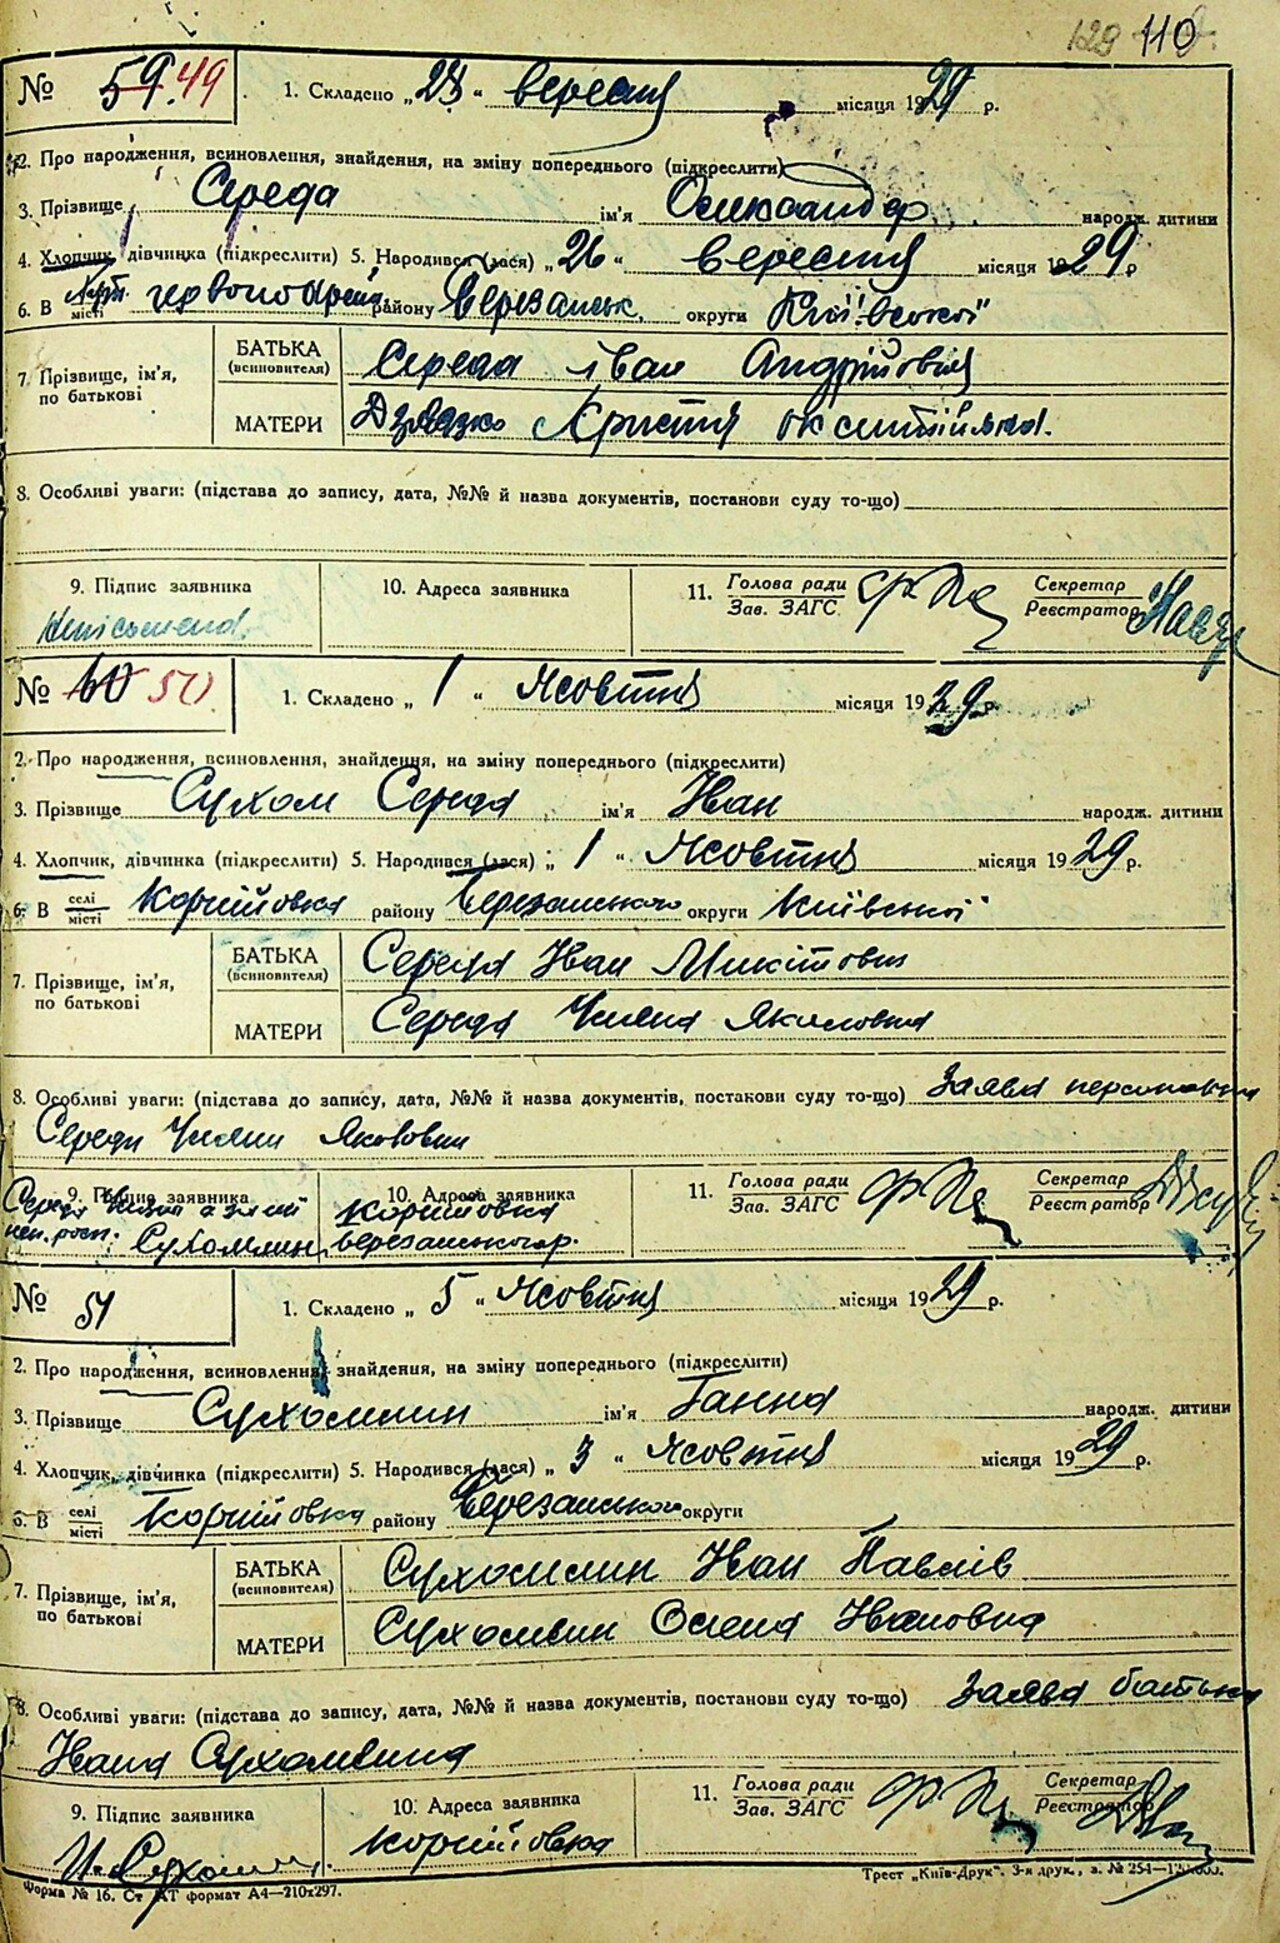 129 110
№ 59. 49
1. Складено „ 28 “ вересня місяця 1929 р.
2. Про народження, всиновлення, знайдення, на зміну попереднього (підкреслити)
3. Прізвище Середа ім'я Олександер народж. дитини
4. Хлопчик, дівчинка (підкреслити) 5. Народився (лася) „ 26 “ вересня місяця 1929 р
6. В місті району Березанськ. округи Київської
7. Прізвище, ім'я, по батькові
БАТЬКА (всиновителя) Середа Іван Андрійович
МАТЕРИ Христя
8. Особливі уваги: (підстава до запису, дата, №№ й назва документів, постанови суду то-що)
9. Підпис заявника 10. Адреса заявника 11. Голова ради Зав. ЗАГС Секретар Реєстратор
№ 60 50
1. Складено „ 1 “ Жовтня місяця 1929 р.
2. Про народження, всиновлення, знайдення, на зміну попереднього (підкреслити)
3. Прізвище Сухом Середа ім'я Іван народж. дитини
4. Хлопчик, дівчинка (підкреслити) 5. Народився (лася) „ 1 “ Жовтня місяця 1929 р.
6. В селі місті Корнійовка району Березанського округи Київської
7. Прізвище, ім'я, по батькові
БАТЬКА (всиновителя) Середа Іван Микітович
МАТЕРИ Середа Уляна Якиловна
8. Особливі уваги: (підстава до запису, дата, №№ й назва документів, постанови суду то-що) Заява персональна
Середи Уляни Якововни
9. Підпис заявника 10. Адреса заявника 11. Голова ради Зав. ЗАГС Секретар Реєстратор
Середа Уляна а за неї Корнійовка
Сухомлин Березанського р.
№ 51
1. Складено „ 5 “ Жовтня місяця 1929 р.
2. Про народження, всиновлення, знайдення, на зміну попереднього (підкреслити)
3. Прізвище Сухомлин ім'я Ганна народж. дитини
4. Хлопчик, дівчинка (підкреслити) 5. Народився (лася) „ 3 “ Жовтня місяця 1929 р.
6. В селі місті Корнійовка району Березанського округи
7. Прізвище, ім'я, по батькові
БАТЬКА (всиновителя) Сухомлин Іван Павлів
МАТЕРИ Сухомлин Олена Івановна
8. Особливі уваги: (підстава до запису, дата, №№ й назва документів, постанови суду то-що) Заява батька
Івана Сухомлина
9. Підпис заявника 10. Адреса заявника 11. Голова ради Зав. ЗАГС Секретар Реєстратор
И. Сухомл. Корнійовка
Форма № 16. Ст АТ формат А4—210х297. Трест „Київ-Друк“. 3-я друк., з. № 254—